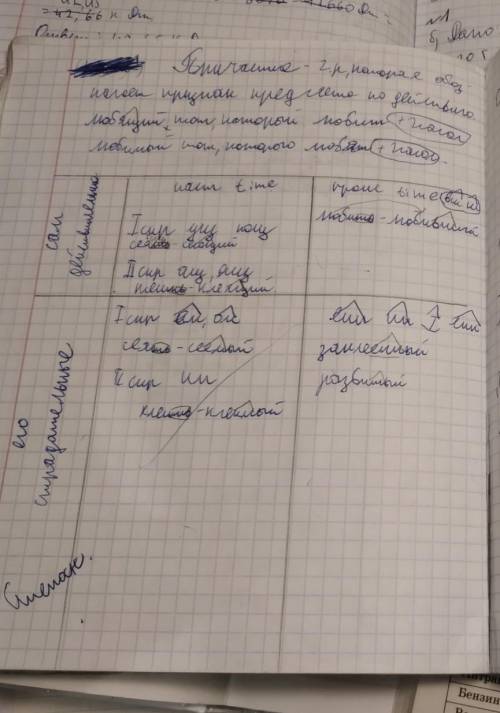 = 42,66 н Дт
б) Дано
Причастие - ч.р, которая обоз-
начает признак предмета по действию
любящий тот, который любит + глагол
любимый тот, которого любят + глагол.
наст time
прош time вш
сам
действительные
I спр ущ ющ
сеять - сеющий
любить - любивший
II спр ащ, ящ
клеить - клеящий.
его
страдательные
I спр ем, ом
енн нн т енн
сеять - сеемый
заклеенный
II спр им
развитый
клеить - клеимый
Степан.
Бензин